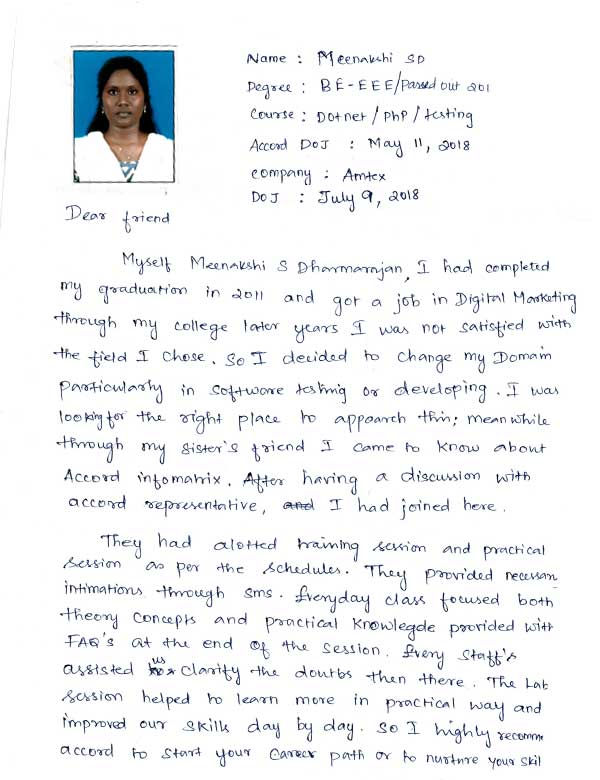 Name : Meenakshi SD
Degree : BE-EEE/Passed out 201
Course : Dotnet / PhP / testing
Accord DOJ : May 11, 2018
company : Amtex
DOJ : July 9, 2018
Dear friend
Myself Meenakshi S Dharmarajan, I had completed
my graduation in 2011 and got a job in Digital Marketing
through my college later years I was not satisfied with
the field I chose. So I decided to change my Domain
particularly in software testing or developing. I was
looking for the right place to appoarch this; meanwhile
through my sister's friend I came to know about
Accord infomatrix. After having a discussion with
accord representative, and I had joined here.
They had alotted training session and practical
session as per the schedules. They provided necessary
intimations through sms. Everyday class focused both
theory concepts and practical knowlegde provided with
FAQ's at the end of the session. Every staff's
assisted us clarify the doutbs then there. The Lab
session helped to learn more in practical way and
improved our skills day by day. So I highly recomm
accord to start your career path or to nurture your skil